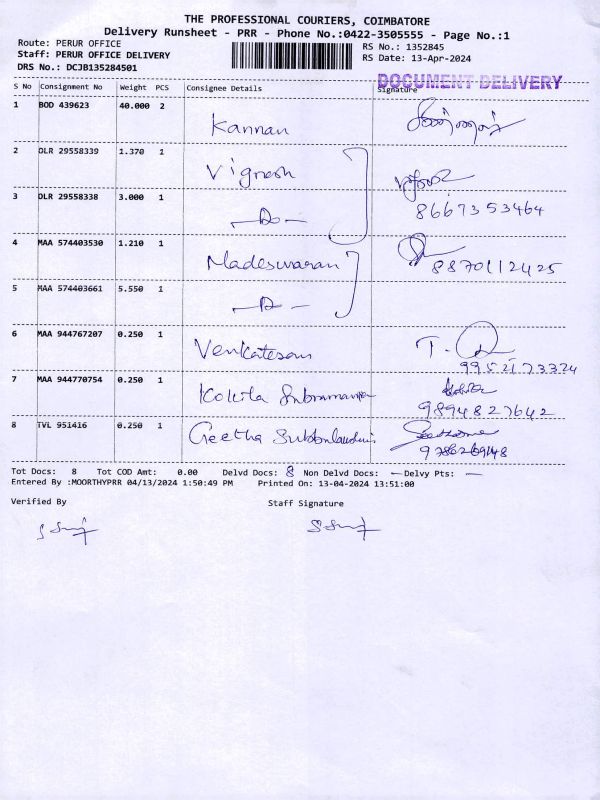 THE PROFESSIONAL COURIERS, COIMBATORE
Delivery Runsheet - PRR - Phone No.:0422-3505555 - Page No.:1
Route: PERUR OFFICE RS No.: 1352845
Staff: PERUR OFFICE DELIVERY RS Date: 13-Apr-2024
DRS No.: DCJB135284501
DOCUMENT DELIVERY
S No Consignment No Weight PCS Consignee Details Signature
1 BOD 439623 40.000 2 Kannan
2 DLR 29558339 1.370 1 Vignesh
3 DLR 29558338 3.000 1 —Do— 8667353464
4 MAA 574403530 1.210 1 Madeswaran 8870112425
5 MAA 574403661 5.550 1 —Do—
6 MAA 944767207 0.250 1 Venkatesan 9952173374
7 MAA 944770754 0.250 1 Kokila 9894827642
8 TVL 951416 0.250 1 Geetha
Tot Docs: 8 Tot COD Amt: 0.00 Delvd Docs: 8 Non Delvd Docs: — Delvy Pts: —
Entered By :MOORTHYPRR 04/13/2024 1:50:49 PM Printed On: 13-04-2024 13:51:00
Verified By Staff Signature